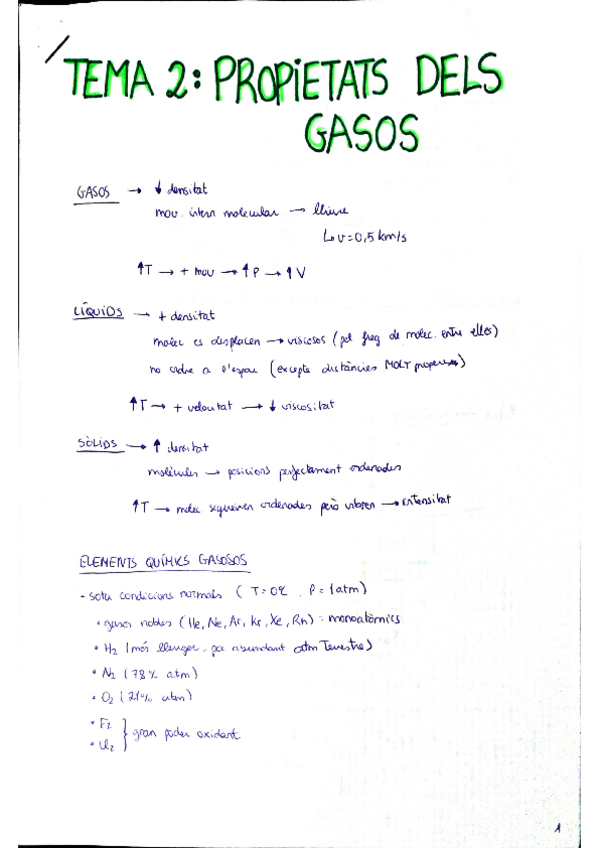 TEMA 2: PROPIETATS DELS
GASOS
GASOS → ↓ densitat
mov. intern molecular → lliure
↳ v=0,5 km/s
↑T → + mov → ↑P → ↑V
LÍQUIDS → + densitat
molec es desplacen → viscosos (pel freg de molec. entre elles)
no ordre a l'espai (excepte distàncies MOLT properes)
↑T → + velocitat → ↓ viscositat
SÒLIDS → ↑ densitat
molècules → posicions perfectament ordenades
↑T → molec segueixen ordenades però vibren → intensitat
ELEMENTS QUÍMICS GASOSOS
- sota condicions normals ( T=0ºC , P=1atm)
• gasos nobles (He, Ne, Ar, Kr, Xe, Rn) = monoatòmics
• H2 (més lleuger, poc abundant atm Terrestre)
• N2 (78% atm)
• O2 (21% atm)
• F2
• Cl2 } gran poder oxidant
1